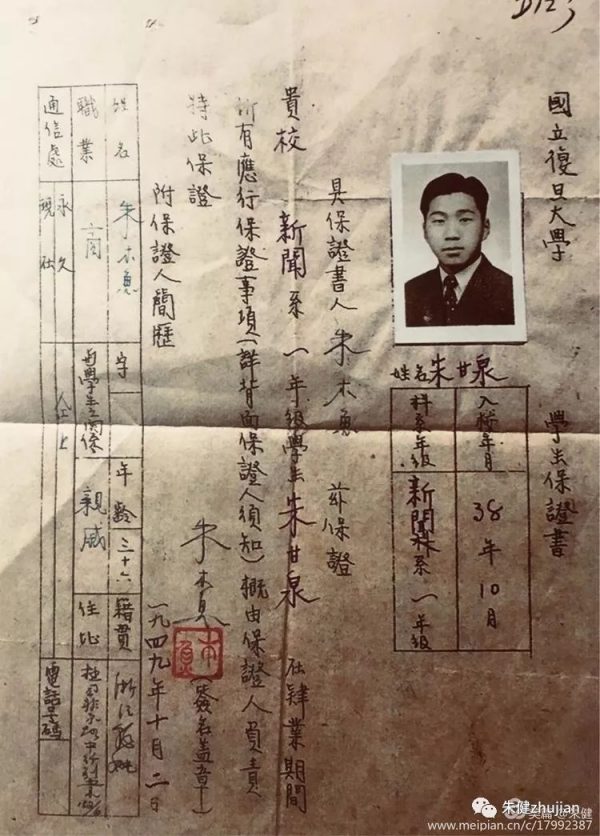 國立復旦大學 學生保證書
姓名朱甘泉
入校年月 38年10月
科系年級 新聞系一年級
具保證書人朱木魚 茲保證
貴校 新聞系一年級學生朱甘泉 在肄業期間
所有應行保證事項(詳背面保證人須知)概由保證人負責
特此保證
朱木魚 (簽名蓋章)
一九四九年十月二日
附保證人簡歷
姓名 朱木魚 字 年齡 三十六 籍貫 浙江
職業 商 與學生之關係 親戚 住址
通信處 永久 現在 電話號碼
朱健zhujian
美篇@朱健
www.meipian.cn/c/17992387